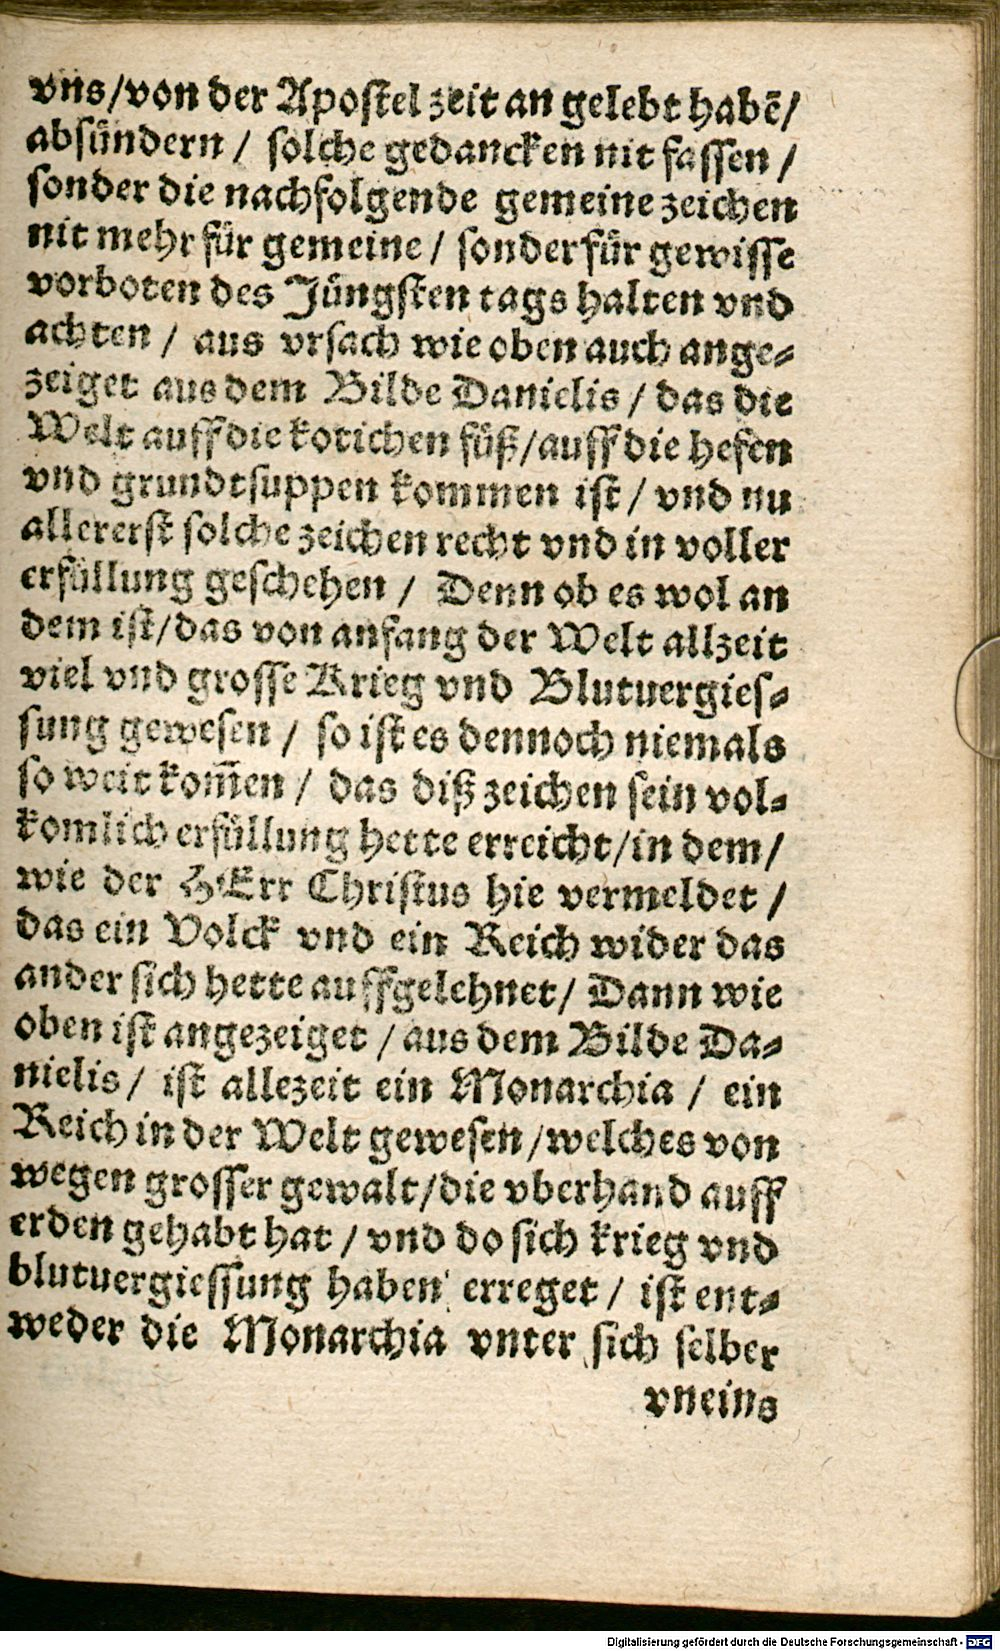 vns/von der Apostel zeit an gelebt habē/
absündern / solche gedancken nit fassen /
sonder die nachfolgende gemeine zeichen
nit mehr für gemeine / sonder für gewisse
vorboten des Jüngsten tags halten vnd
achten / aus vrsach wie oben auch ange-
zeiget aus dem Bilde Danielis / das die
Welt auff die kotichen füß/auff die hefen
vnd grundtsuppen kommen ist / vnd nu
allererst solche zeichen recht vnd in voller
erfüllung geschehen / Denn ob es wol an
dem ist/das von anfang der Welt allzeit
viel vnd grosse Krieg vnd Blutuergies-
sung gewesen / so ist es dennoch niemals
so weit kom̃en / das diß zeichen sein vol-
komlich erfüllung hette erreicht/in dem/
wie der HErr Christus hie vermeldet /
das ein Volck vnd ein Reich wider das
ander sich hette auffgelehnet/ Dann wie
oben ist angezeiget / aus dem Bilde Da-
nielis / ist allezeit ein Monarchia / ein
Reich in der Welt gewesen/welches von
wegen grosser gewalt/die vberhand auff
erden gehabt hat / vnd do sich krieg vnd
blutuergiessung haben erreget / ist ent-
weder die Monarchia vnter sich selber
vneins
Digitalisierung gefördert durch die Deutsche Forschungsgemeinschaft - DFG